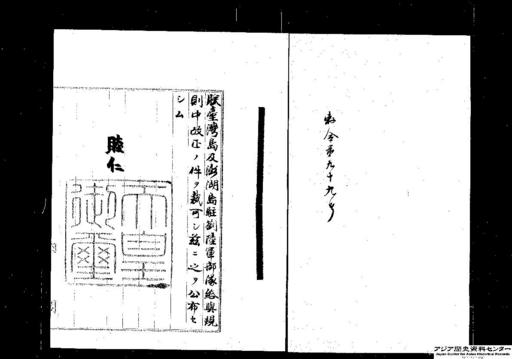 勅令第九十九号
朕臺灣島及澎湖島駐劄陸軍部隊給與規
則中改正ノ件ヲ裁可シ茲ニ之ヲ公布セ
シム
睦仁
天皇御璽
アジア歴史資料センター
Japan Center for Asian Historical Records